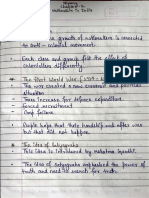 History
Chapter - 2
Nationalism In India
The growth of nationalism is connected
to anti - colonial movement.
Each class and group felt the effect of
colonialism differently
The First World War (1914 -
The war created a new economic and political
situation
Taxes increase for defence expenditure
Forced recruitment
Crop failure
People hope that their hardship ends after war
but that did not happen.
The Idea of Satyagraha
The idea introduced by mahatma Gandhi.
The Idea of Satyagraha emphasised the power of
truth and need to search for truth.